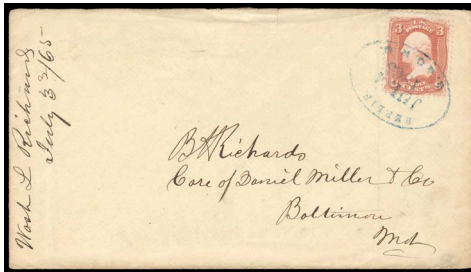 Wash L Richards
July 3d/65
3 U.S. 3
POSTAGE
JUL 4
B H Richards
Care of Daniel Miller & Co
Baltimore
Md